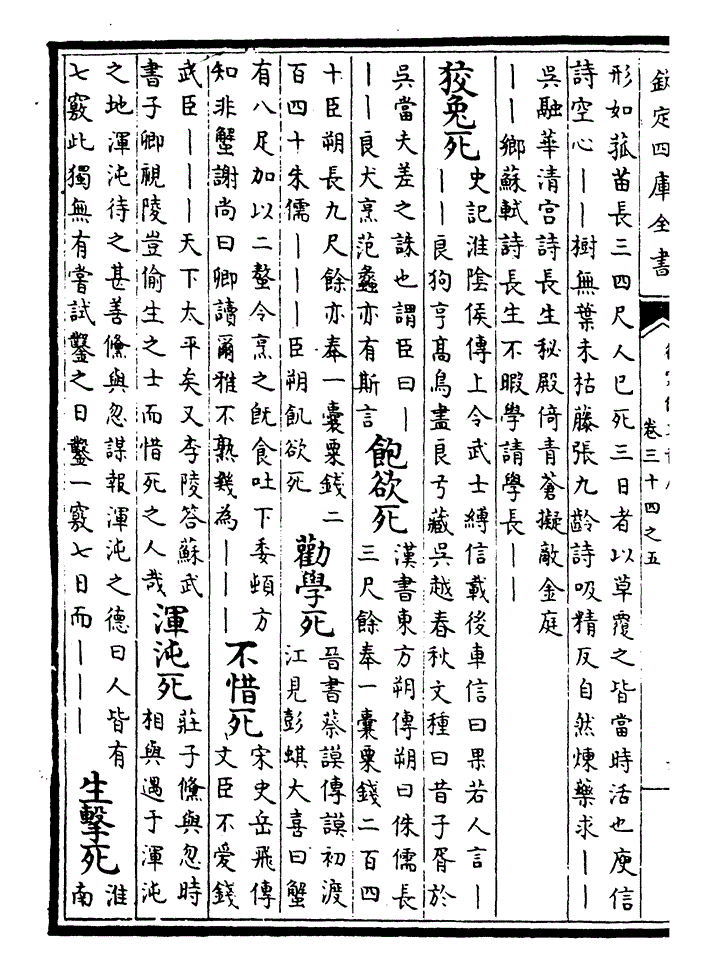 欽定四庫全書
卷三十四之五
形如菰苗長三四尺人已死三日者以草覆之皆當時活也庾信
詩空心——樹無葉未枯藤張九齡詩吸精反自然煉藥求——
吳融華清宫詩長生秘殿倚青蒼擬敵金庭
——鄉蘇軾詩長生不暇學請學長——
狡兔死
史記淮隂侯傳上令武士縛信載後車信曰果若人言—
——良狗亨髙鳥盡良弓藏吳越春秋文種曰昔子胥於
吳當夫差之誅也謂臣曰—
——良犬烹范蠡亦有斯言
飽欲死
漢書東方朔傳朔曰侏儒長
三尺餘奉一囊粟錢二百四
十臣朔長九尺餘亦奉一囊粟錢二
百四十朱儒———臣朔飢欲死
勸學死
晉書蔡謨傳謨初渡
江見彭蜞大喜曰蟹
有八足加以二螯令烹之旣食吐下委頓方
知非蟹謝尚曰卿讀爾雅不熟幾為———
不惜死
宋史岳飛傳
文臣不愛錢
武臣———天下太平矣又李陵答蘇武
書子卿視陵豈偷生之士而惜死之人哉
渾沌死
莊子儵與忽時
相與遇于渾沌
之地渾沌待之甚善儵與忽謀報渾沌之德曰人皆有
七竅此獨無有嘗試鑿之日鑿一竅七日而———
生擊死
淮
南